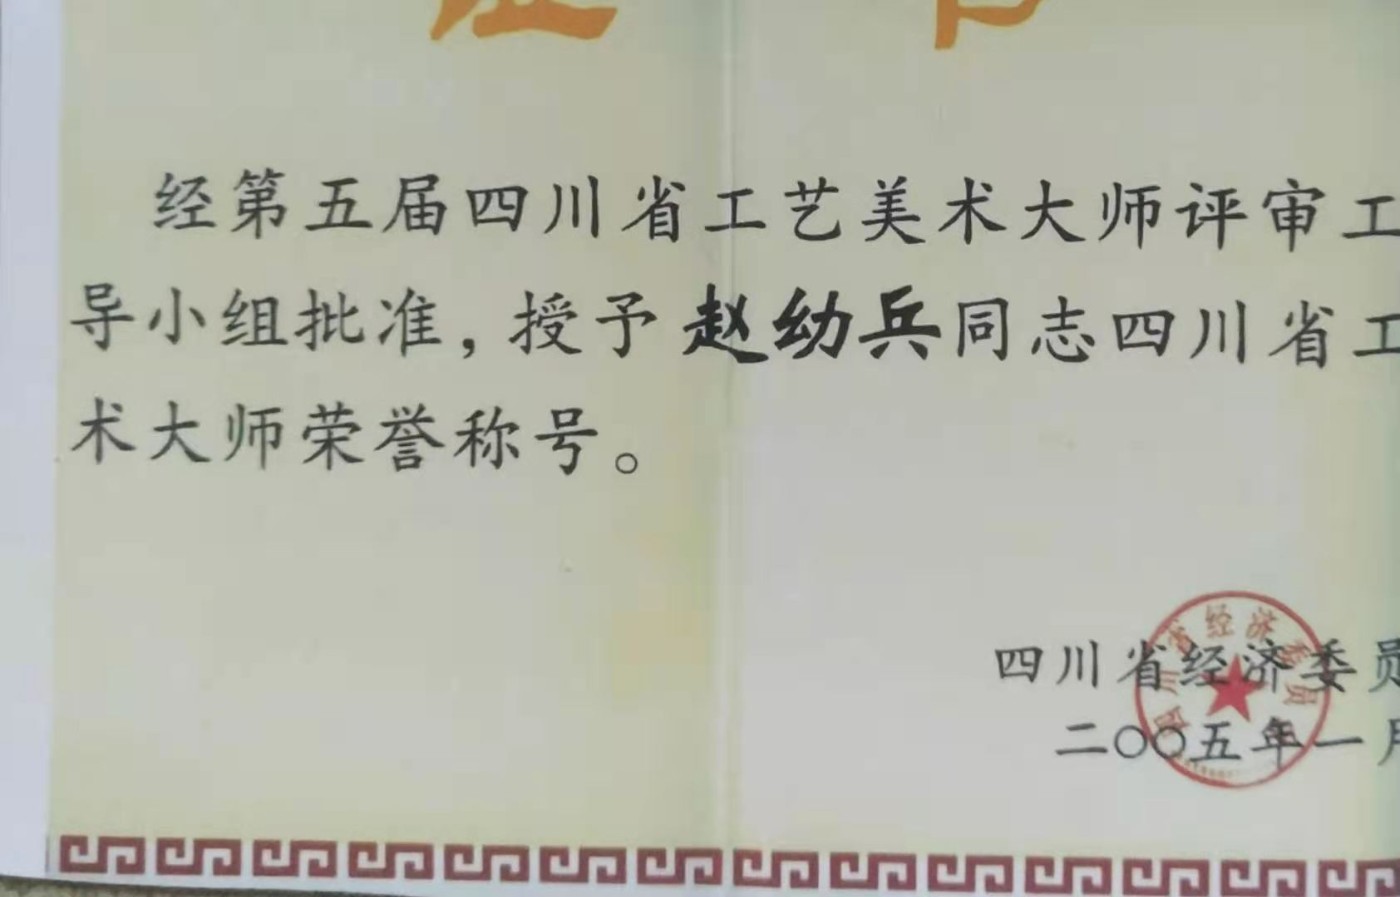 经第五届四川省工艺美术大师评审工
导小组批准，授予赵幼兵同志四川省工
术大师荣誉称号。
四川省经济委员
二〇〇五年一月